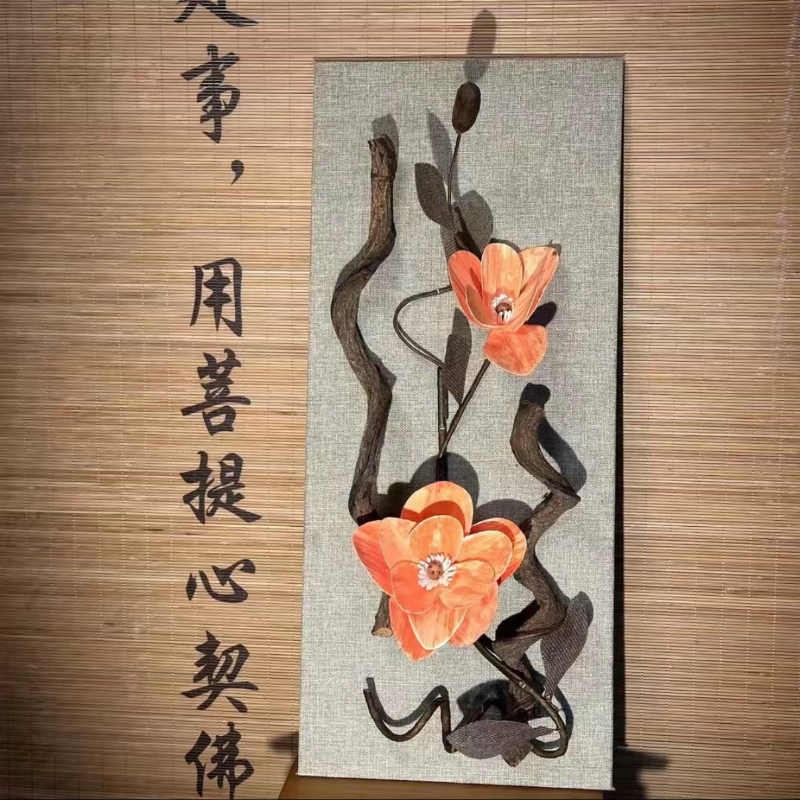 事，用菩提心契佛